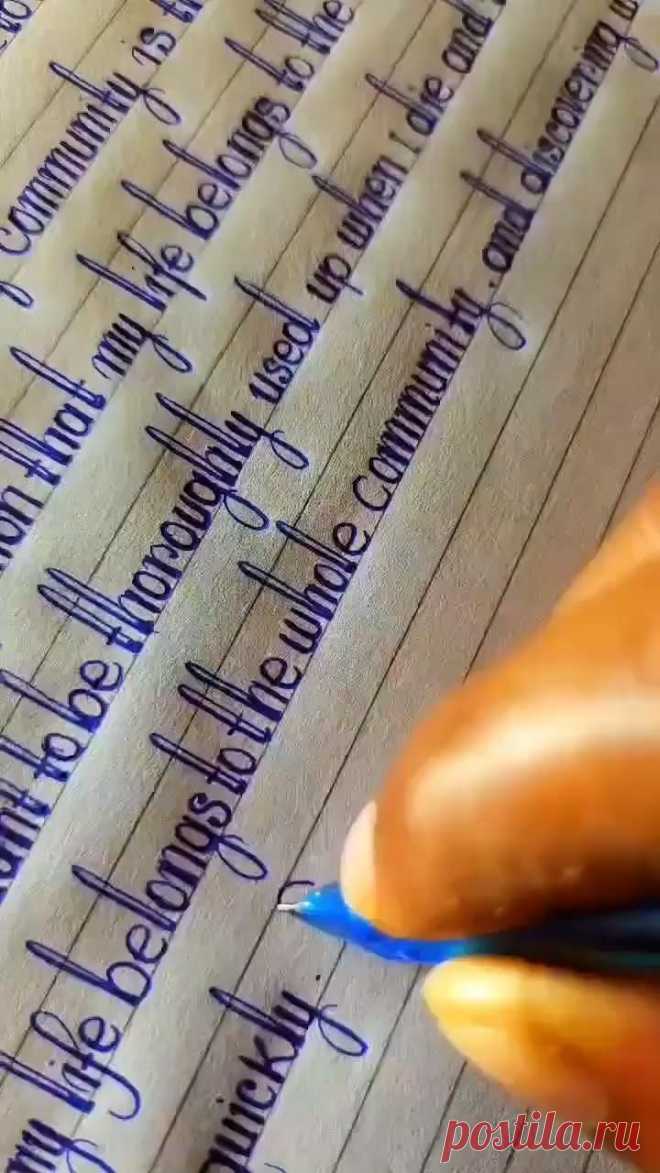 community is
that my life belongs to the
to be thoroughly used up when i die and
my life belongs to the whole community. and discovering
quickly
postila.ru